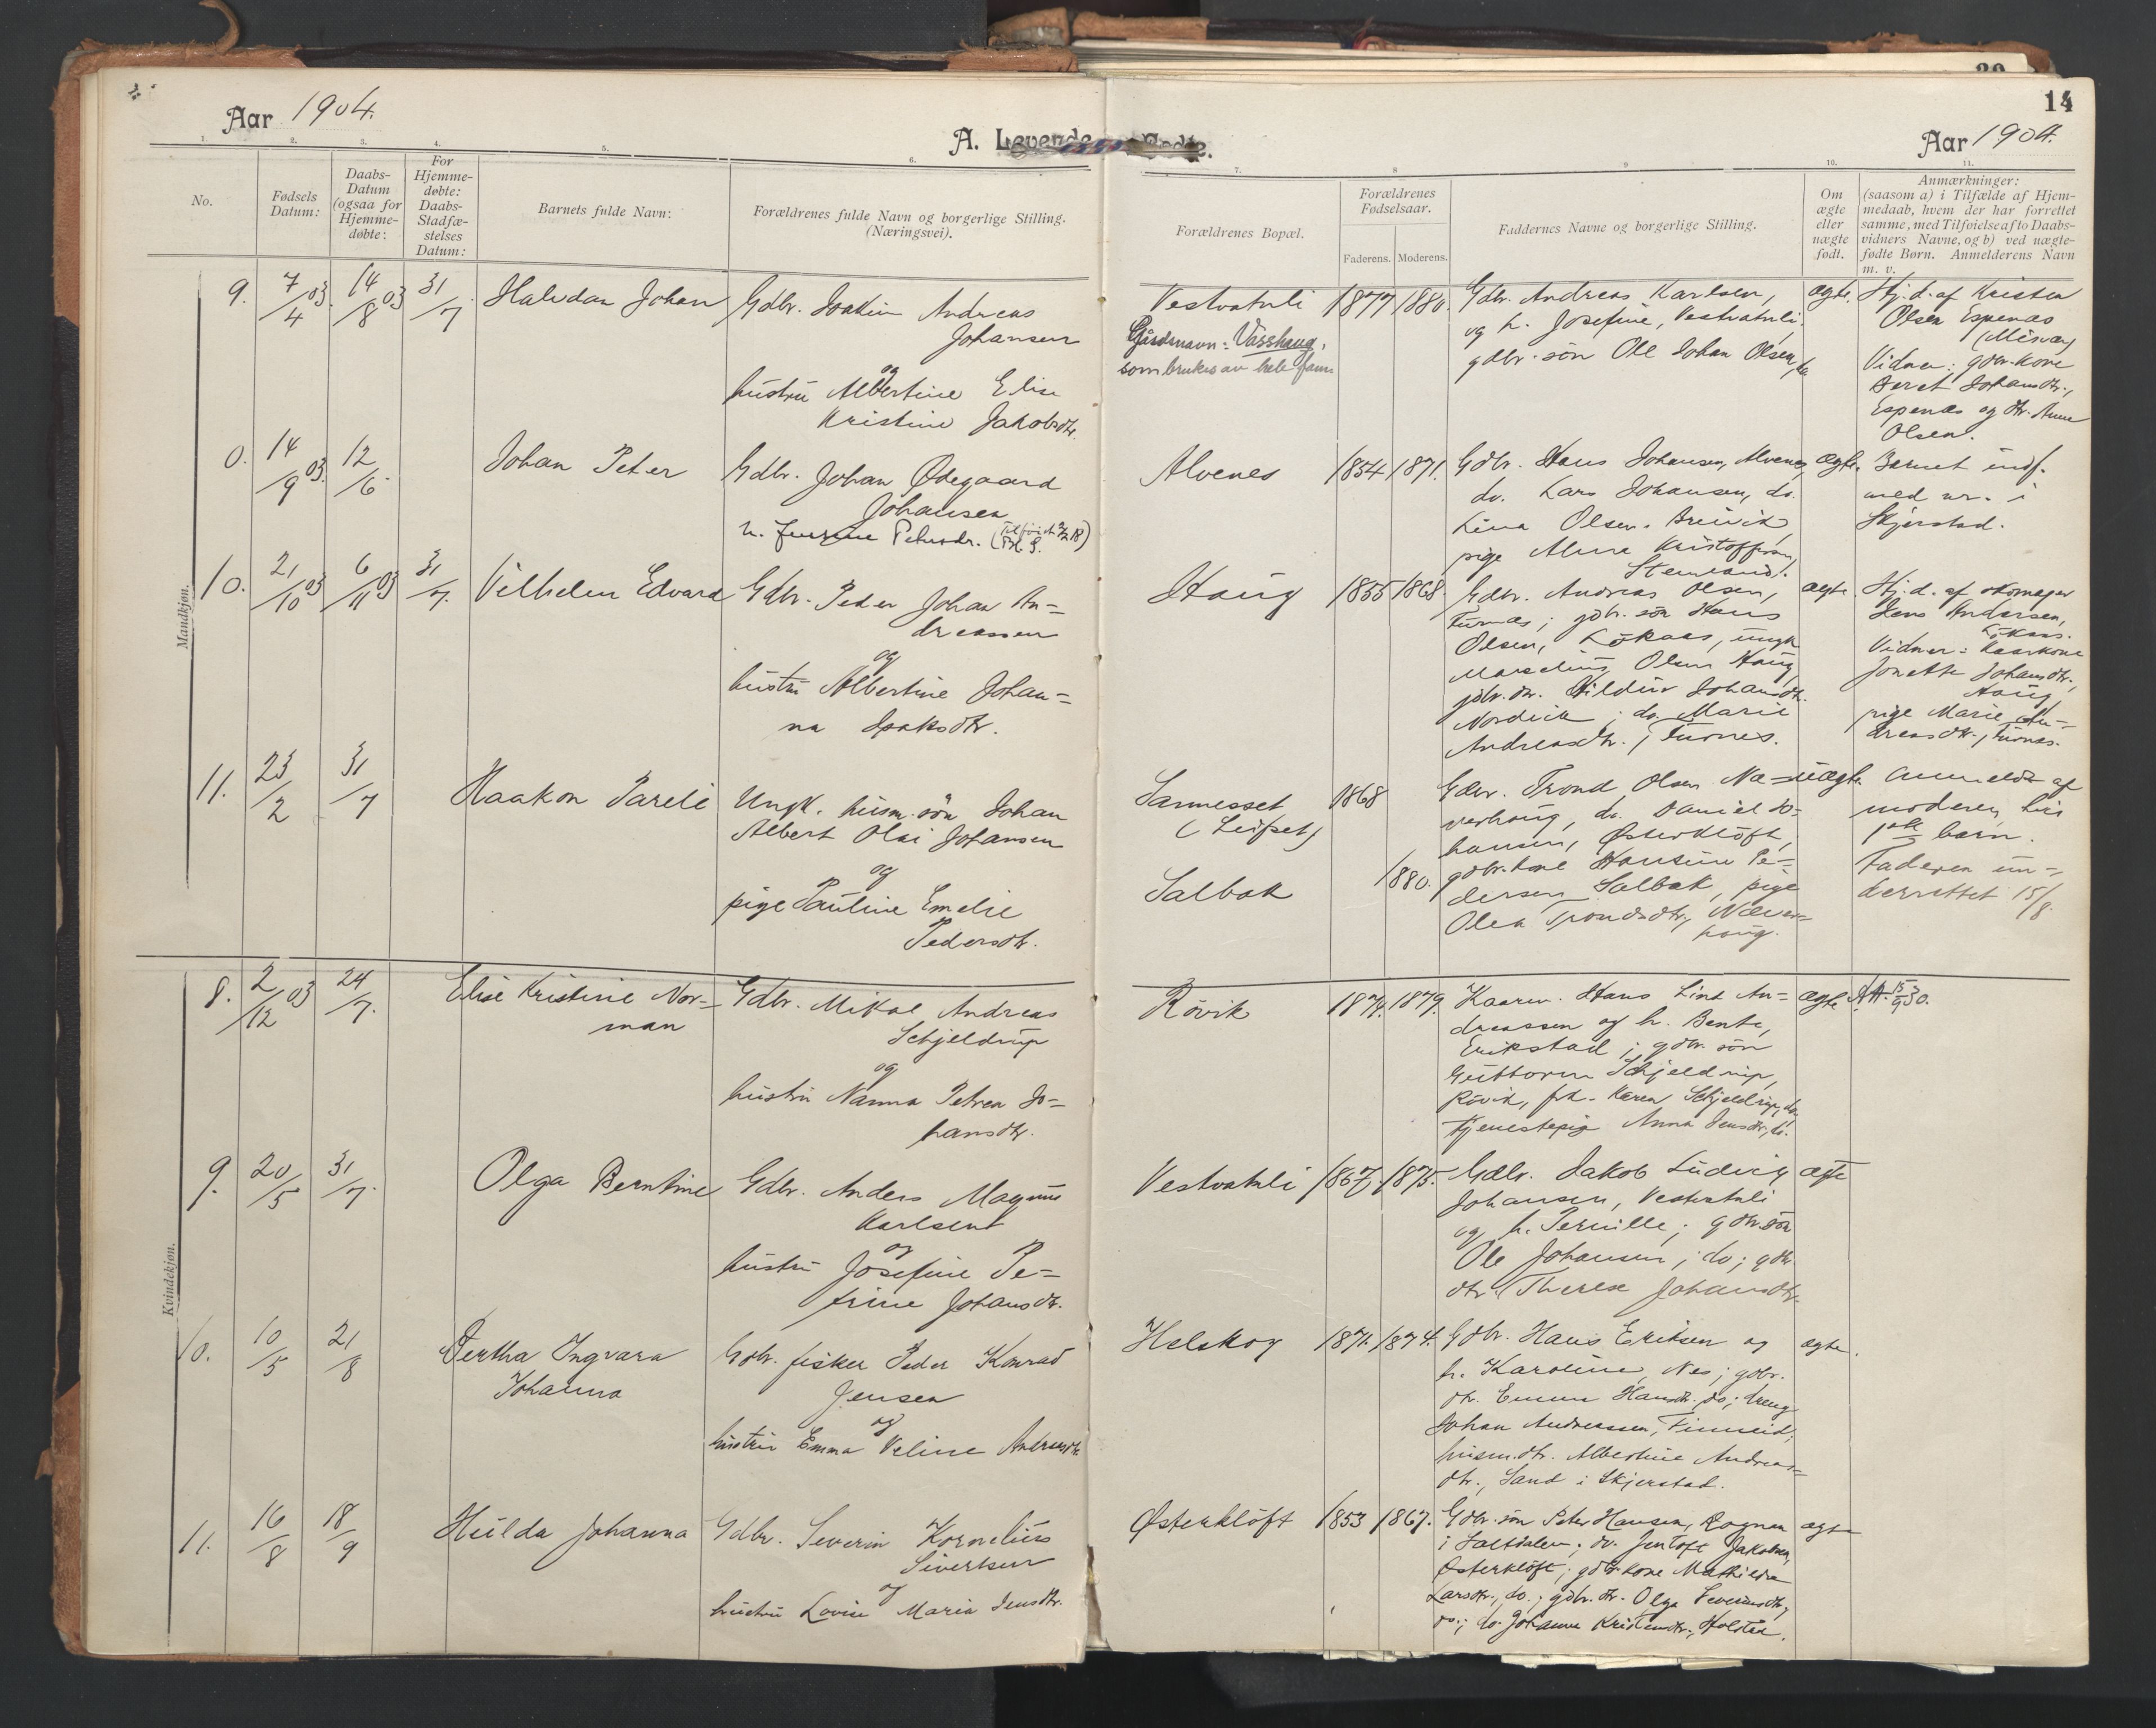 Aar 1904.
A. Levende Fødte.
14
Aar 1904.
1.
2.
3.
4.
5.
6.
7.
8
9
10.
11.
No.
Fødsels
Datum:
Daabs-
Datum
(ogsaa for
Hjemme-
døbte:
For
Hjemme-
døbte:
Daabs-
Stadfæ-
stelses
Datum:
Barnets fulde Navn:
Forældrenes fulde Navn og borgerlige Stilling.
(Næringsvei).
Forældrenes Bopæl.
Forældrenes
Fødselsaar.
Faderens. Moderens.
Faddernes Navne og borgerlige Stilling.
Om
ægte
eller
uægte
født.
Anmærkninger:
(saasom a) i Tilfælde af Hjem-
medaab, hvem der har forrettet
samme, med Tilføielse af to Daabs-
vidners Navne, og b) ved uægte-
fødte Børn. Anmelderens Navn
m. v.
Mandkjøn.
9.
7/4 03.
14/8 03
31/7.
Halvdan Johan
Gdbr. Joakim Andreas
Johansen
og
hustru Albertine Elise
Kristine Jakobsdtr.
Vestvatnli
Gårdsnavn: Vasshaug,
som brukes av hele fam
1877
1880.
Gdbr. Andreas Karlsen,
og h. Josefine, Vestvatnli.
gdbr. søn Ole Johan Olsen, do
ægte.
Hj. d. af Kristen
Olsen Espenæs
Vidner: gdbr. kone
Beret Johansdtr.,
Espenæs og dtr. Anna
Olsen.
0.
14/9 03.
12/6.
Johan Peter
Gdbr. Johan Ødegaard
Johansen
Alvenes
1854
1871.
Gdbr. Hans Johansen, Alvenes,
do. Lars Johansen, do.
Lina Olsen. Breivik,
pige Alma Kristoffersen,
ægte.
Barnet indf.
med nr. i
Skjerstad.
10.
21/10 03
6/11 03
31/7.
Vilhelm Edvard
Gdbr. Peder Johan An-
dreassen
og
hustru Albertine Johan-
na Isaksdtr.
Haug
1855
1868.
Gdbr. Andreas Olsen,
Turnæs; gdbr. søn Hans
Olsen, Løkaas, ungk
Marselius Olsen Haug,
gdbr. dtr. Hildur Johansdtr.
Nordvik; do. Marie
Andreasdtr., Turnes.
ægte.
Hj. d. af skomager
Jens Andersen,
Løkaas.
Vidner: Kaarkone
Jonette Johansdtr.,
Haug
pige Marie An-
dreasdtr., Turnæs.
11.
23/2
31/7
Haakon Pareli
Ungk. husm. søn Johan
Albert Olai Johansen
og
pige Pauline Emelie
Pedersdtr.
(Leifset)
Salbak
1868
1880.
Gdbr. Trond Olsen Næ-
verhaug, do. Daniel Jo-
hansen, Østerkløft,
gdbr. kone Hansine Pe-
dersen Salbak, pige
Olea Trondsdtr., Næver-
haug.
uægte
Anmeldt af
moderen, hvis
1ste barn.
Faderen un-
derrettet 15/8.
Kvindekjøn.
8.
2/12 03
24/7.
Elise Kristine Nor-
man
Gdbr. Mikal Andreas
Schjeldrup
og
hustru Nanna Petrea Jo-
hansdtr.
Røvik
1874.
1879.
Kaarm. Hans Lind An-
dreassen og h. Bente,
Erikstad; gdbr. søn
Guttorm Schjeldrup,
Røvik, frk. Karen Schjeldrup, do.
tjenestepige Anna Jensdtr., do.
ægte
A.A. 15/9 30.
9.
20/5
31/7.
Olga Berntine
Gdbr. Anders Magnus
Karlsen
og
hustru Josefine Pe-
trine Johansdtr.
Vestvatnli
1867.
1875.
Gdbr. Jakob Ludvig
Johansen, Vestvatnli
og h. Pernille; gdbr. søn
Ole Johansen; do; gdbr.
dtr. Therese Johansdtr.
ægte
10.
10/5
21/8
Bertha Ingvara
Johanna
Gdbr. fisker Peder Konrad
Jensen
og
hustru Emma Veline Andersdtr.
Helskog
1871.
1874.
Gdbr. Hans Eriksen og
h. Karoline, Nes; gdbr.
dtr. Emma Hansdtr. do; dreng
Johan Andreassen, Finneid;
husm. dtr. Albertine Andreas-
dtr., Sand i Skjerstad.
ægte.
11.
16/8
18/9
Hulda Johanna
Gdbr. Severin Kornelius
Sivertsen
og
hustru Lovise Maria Jensdtr.
Østerkløft
1853
1867.
Gdbr. søn Peter Hansen, Rognan
i Saltdalen; do. Jentoft Jakobsen,
Østerkløft; gdbr. kone Mathilde
Larsdtr., do.; gdbr. dtr. Olga Severinsdtr.,
do.; do. Johanna Kristensdtr., Holstad.
ægte